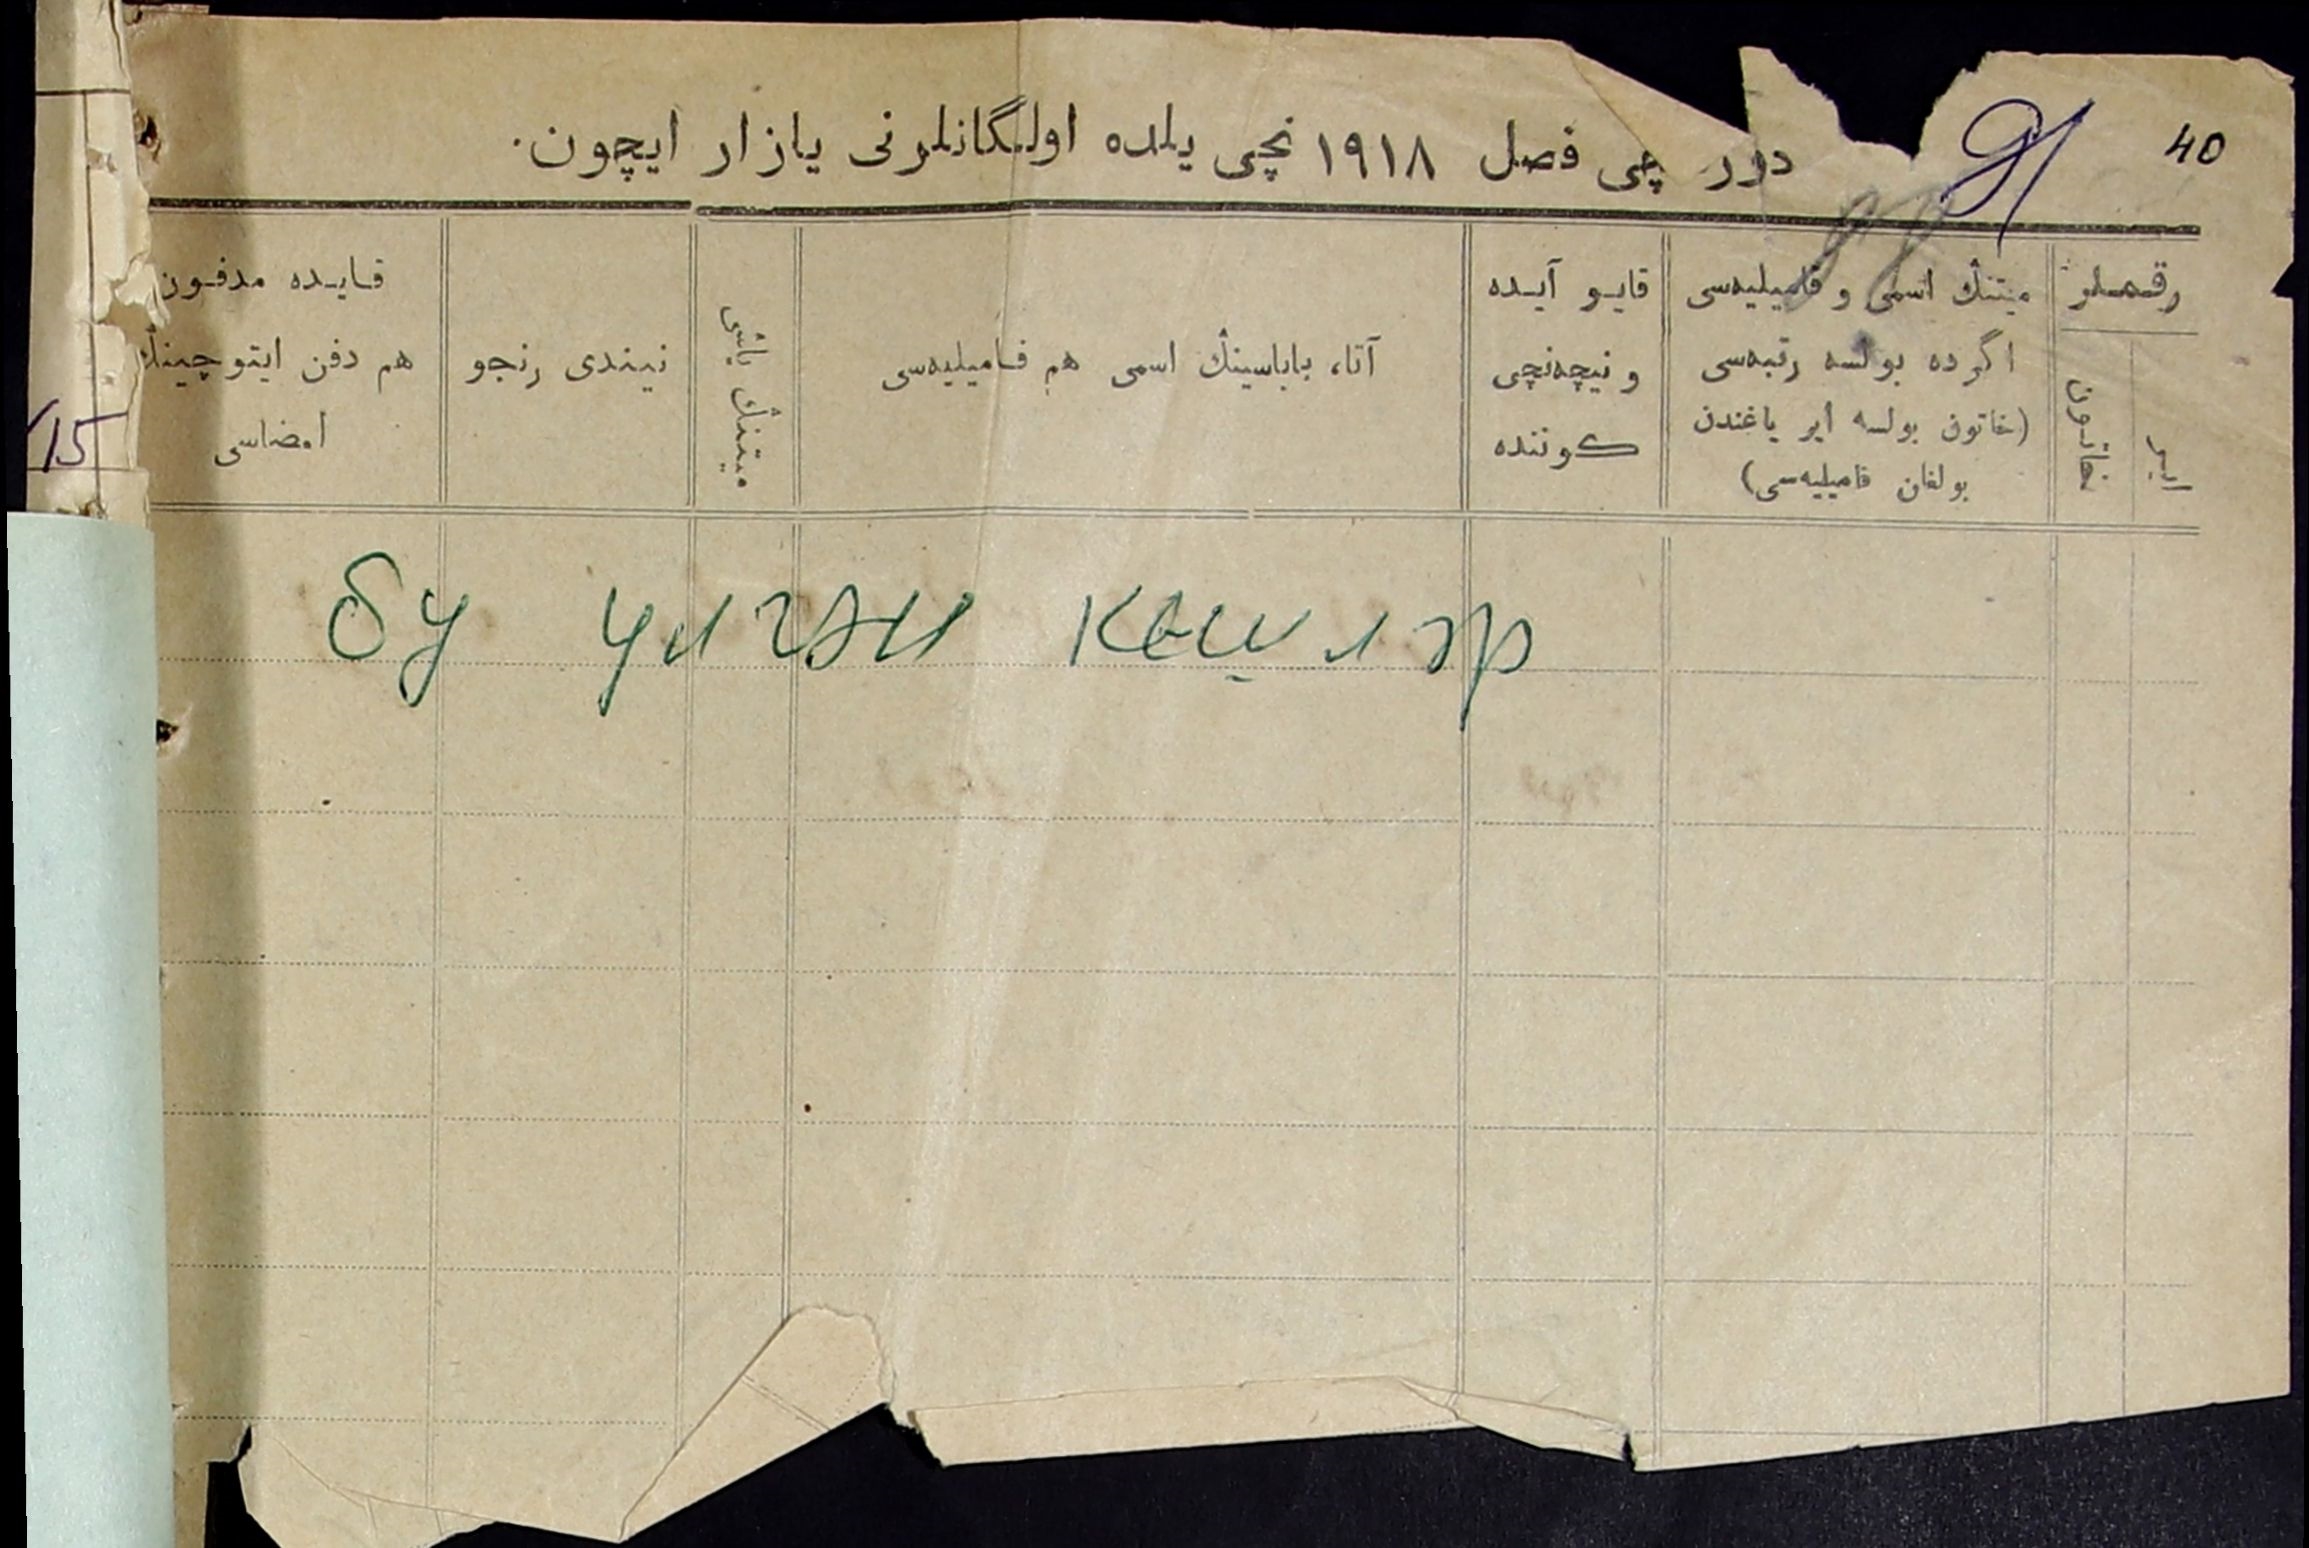 40
91
دور چی فصل ۱۹۱۸ نچی یلده اولـگانلرنی یازار ایچون.
رقـمـلر
ایر
خاتـون
میتنڭ اسمی و فامیلیه‌سی
اگر ده بولسه رتبه‌سی
(خاتون بولسه ایر یاغندن
بولغان فامیلیه‌سی)
قایـو آیـده
و نیچه‌نچی
کوننده
آتا، باباسینڭ اسمی هم فـامیلیه‌سی
میتنڭ یاشی
نیـندی رنجو
قـایـده مدفـون
هم دفن ایتوچینڭ
امضاسی
15
бу үлгән кешеләр